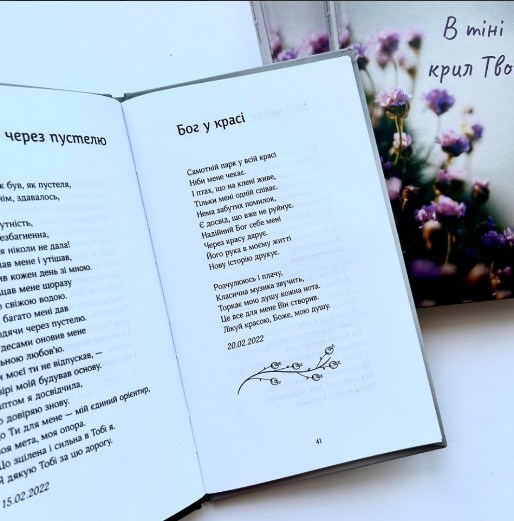 через пустелю
к був, як пустеля,
нім, здавалось,
тність,
езбагненна,
я ніколи не дала!
ав мене і утішав,
ив кожен день зі мною.
щав мене щоразу
ю свіжою водою.
багато мені дав
одячи через пустелю.
десами оновив мене
льною любов'ю.
и моєї ти не відпускав, —
вірі моїй будував основу.
птом я досвідчила,
о довіряю знову.
о Ти для мене — мій єдиний орієнтир,
оя мета, моя опора.
Що зцілена і сильна в Тобі я.
Я дякую Тобі за цю дорогу.
15.02.2022
Бог у красі
Самотній парк у всій красі
Ніби мене чекає.
І птах, що на клені живе,
Тільки мені одній співає.
Нема забутих помилок,
Є досвід, що вже не руйнує.
Надійний Бог себе мені
Через красу дарує.
Його рука в моєму житті
Нову історію друкує.
Розчулююсь і плачу,
Класична музика звучить,
Торкає мою душу кожна нота.
Це все для мене Він створив.
Лікуй красою, Боже, мою душу.
20.02.2022
41
В тіні
крил Тво